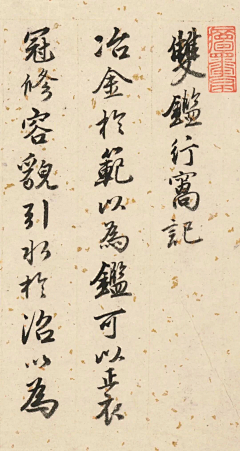 雙鑑行窩記
冶金於範以為鑑可以正衣
冠修容貌引水於沼以為